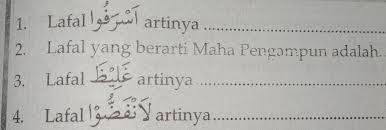 1. Lafal أَسْرَفُوا artinya ....................
2. Lafal yang berarti Maha Pengampun adalah..
3. Lafal غَلِيْظَ artinya ....................
4. Lafal لَانْفَضُّوْا artinya ....................